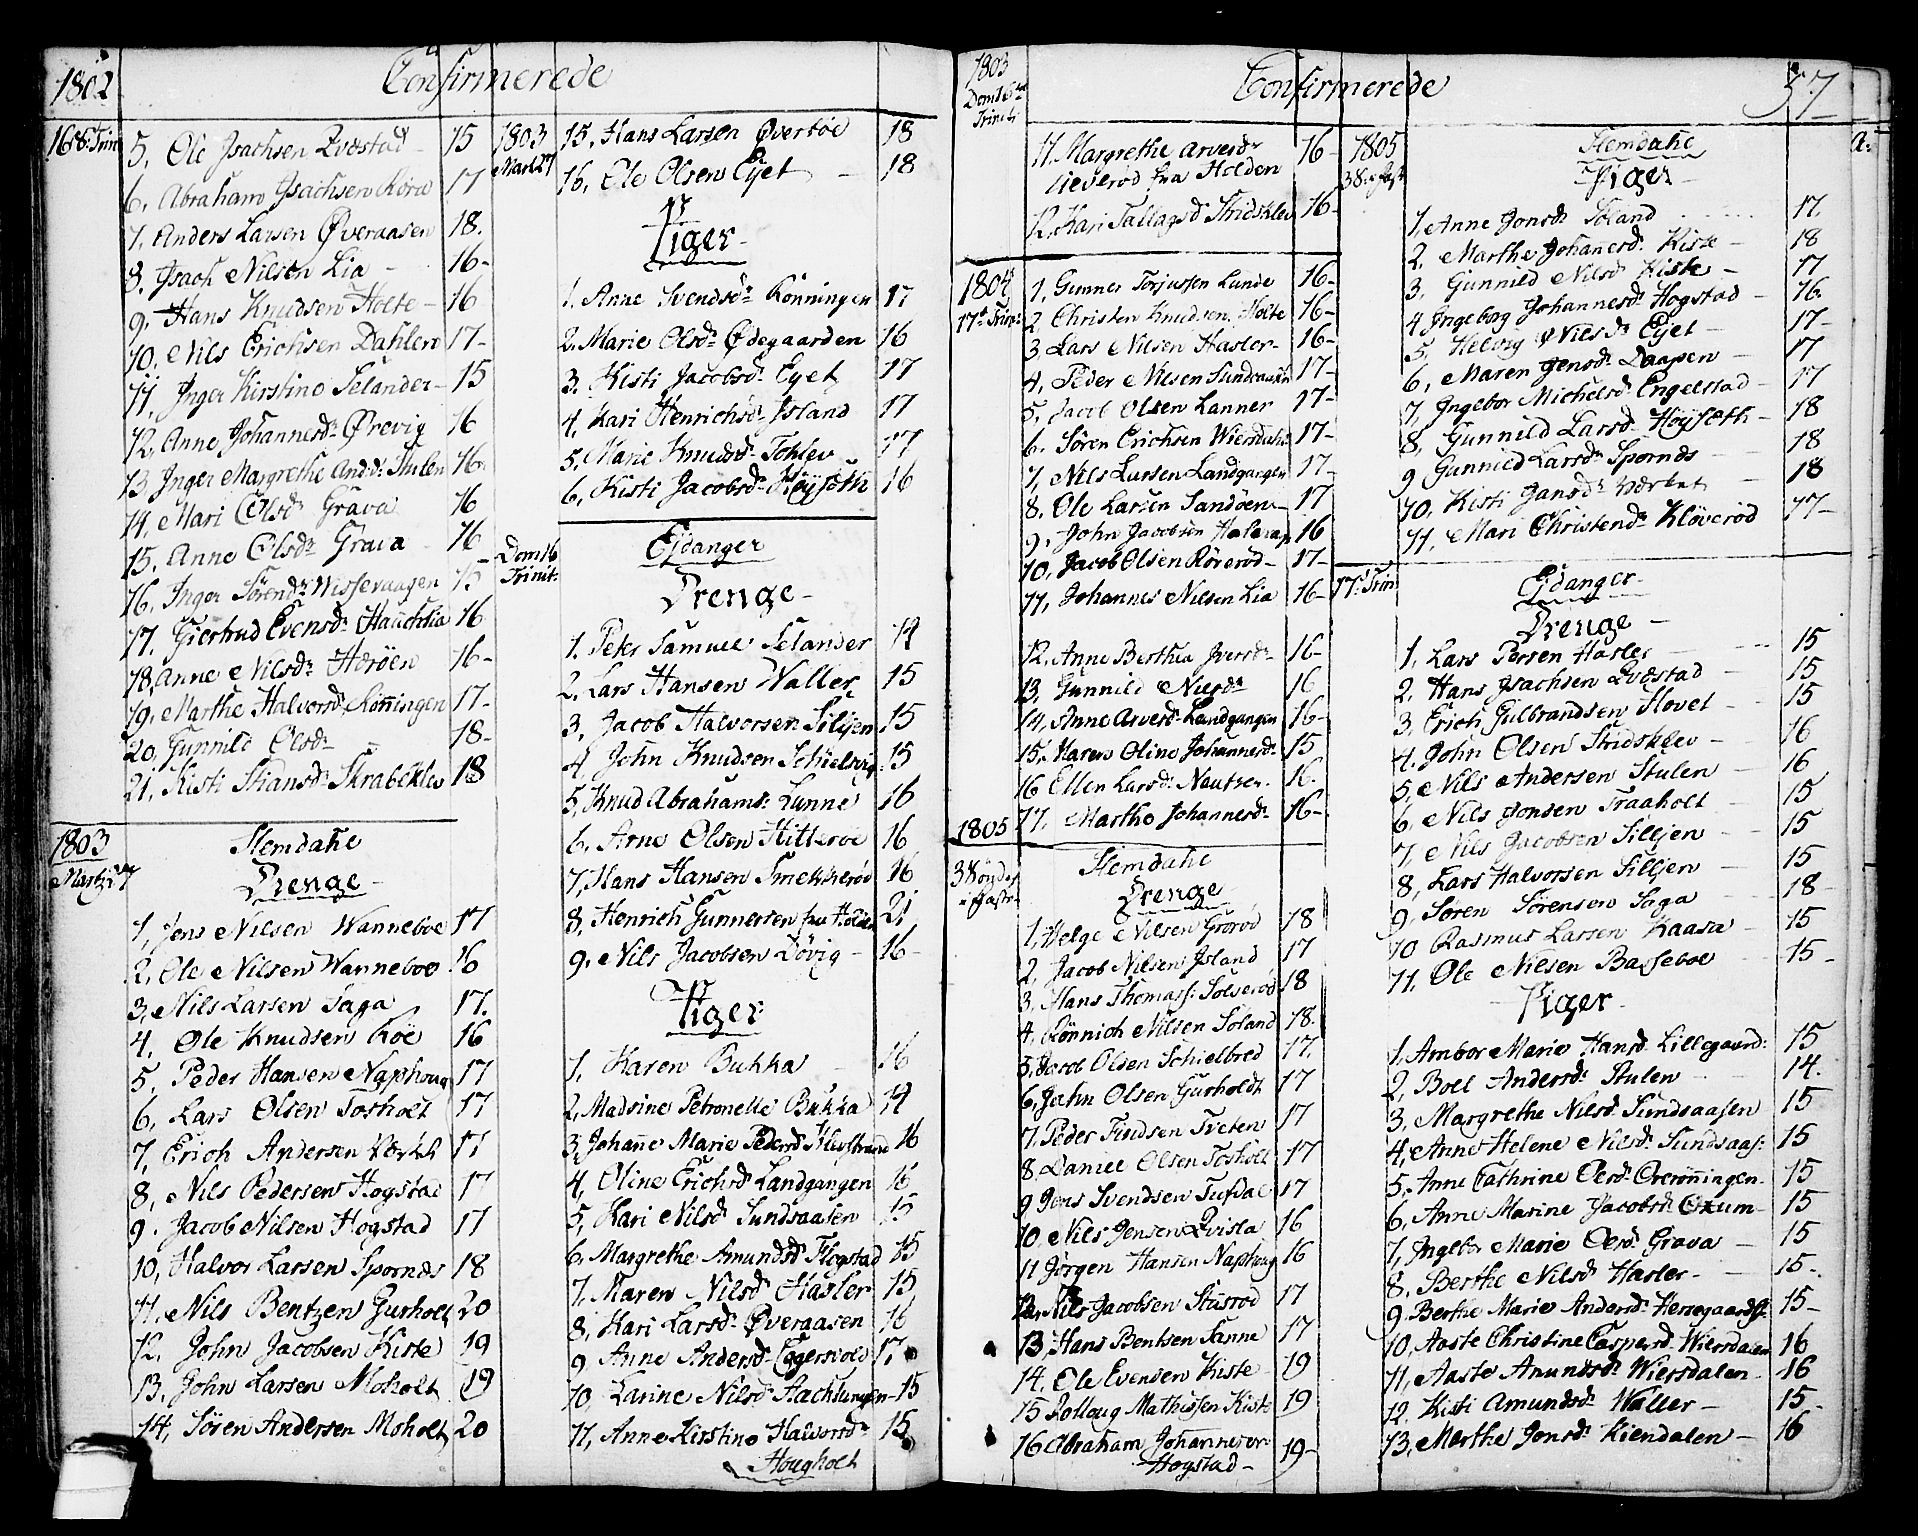 1802
Confirmerede
16 S. Trin
5, Ole Isachsen Qvestad 15
6, Abraham Isachsen Røra 17
7, Anders Larsen Øveraasen 18.
8, Isach Nilsen Lia - 16-
9, Hans Knudsen Holte - 16
10, Nils Erichsen Dahlen 17-
11, Inger Kirstine Selander - 15
12, Anne Johannesdr Ørevig 16
13 Inger Margrethe And.dr Stulen 16.
14, Mari Olsdr Grava 16
15, Anne Olsdr Grava 16
16, Inger Sörendr Wissevaagen 15
17, Giertrud Evensdr Hauchlia 16
18, Anne Nilsdr Herøen 16-
19, Marthe Halvorsdr Rönningen 17-
20, Gunnild Olsdr 18-
21, Kisti Stiansdr Skrabeklev 18
1803
Martz. 27
Slemdahe
Drenge -
1, Jens Nilsen Wanneboe 17
2, Ole Nilsen Wanneboe 16
3, Nils Larsen Saga 17.
4, Ole Knudsen Röe 16
5, Peder Hansen Naphoug 17
6, Lars Olsen Tosholt 17
7, Erich Andersen Værket 17
8, Nils Pedersen Hogstad 17
9. Jacob Nilsen Hogstad 17
10, Halvor Larsen Spornes 18
11, Nils Bentzen Gurholt 20
12, John Jacobsen Kiste 19
13, John Larsen Moholt 19
14, Sören Andersen Moholt 20
1803
Mart. 27
15, Hans Larsen Øverböe 18
16, Ole Olsen Ejet - 18
Piger -
1. Anne Svendsdr Rönningen 17
2. Marie Olsdr Ødegaarden 16
3. Kisti Jacobsdr Ejet 17
4, Kari Henrichsdr Island 17
5, Marie Knudsdr Tohlev 17
6, Kisti Jacobsdr Høysæth 16
Dom 16
Trinit:
Ejdanger
Drenge -
1. Peter Samuel Selander 14
2. Lars Hansen Waller 15
3, Jacob Halvorsen Siljen 15
4, John Knudsen Schielsvig 15
5, Knud Abrahams: Lunne 16
6, Arne Olsen Hitteröe 16
7, Hans Hansen Tmekkeröe 16
8, Henrich Gunnersen fra Holden 21
9, Nils Jacobsen Dövig - 16-
Piger
1, Karen Bukka 16
2, Madsine Petronelle Bukka 14
3, Johanne Marie Pedersdr Klevstrand 16
4, Oline Erichsdr Landgangen 16
5, Kari Nilsdr Sundsaasen 15
6. Margrethe Amundsdr Flogstad 15
7. Maren Nilsdr Hasler 15,
8, Kari Larsdr Øveraasen 16
9 Anne Andersdr Eggersvold 17.
10, Karine Nilsdr Aachlungen - 15
11, Anne Kirstine Halvorsdr 15
Hougholt
1803
Dom 16de
Trinit:
Confirmerede
57
11. Margrethe Arvesdr 16-
Lieverød fra Holden
12, Kari Tallagsdr Stridsklev 16-
1804
17de Trin:
1, Gunner Torjusen Lunde 16-
2, Christen Knudsen Holte 16-
3. Lars Nilsen Hasler - 16-
4, Peder Nilsen Sundsaasen 17-
5, Jacob Olsen Lanner 17-
6. Søren Erichsen Wiersdahl 17-
7, Nils Larsen Landgangen 17-
8. Ole Larsen Sandöen - 17
9. John Jacobsen 16
10, Jacob Olsen Rörerød - 17-
11, Johannes Nilsen Lia 16-
12, Anne Berthea Iversdr 16-
13, Gunnild Nielsdr 16
14, Anne Arvesdr Landgangen 16-
15, Karen Oline Johannesdr 15
16 Ellen Larsdr Neutzer. 16.
17. Marthe Johannesdr 16-
1805
3 Sönd:
i Faste
Slemdahe
Drenge
1, Helge Nilsen Grörød 18
2, Jacob Nilsen Island 17
3, Hans Thomass: Solverød 18
4, Rönnich Nilsen Soland 18.
5, Jacob Olsen Schielbred 17.
6, John Olsen Gurholdt 17
7. Peder Findsen Tveten 17
8. Daniel Olsen Tosholt 17
9 Jens Svendsen Tufdal 17
10, Nils Jensen Qvisla 16
11 Jörgen Hansen Naphoug 16
12, Nils Jacobsen Stusrød 17
13, Hans Bentsen Sanne 17
14. Ole Evensen Kiste 19
15 Solloug Mathissen Kiste 19
16 Abraham Johannesen 19-
Hogstad -
1805
3 S. i Fast
Slemdahe
Piger
1, Anne Jonsdr Soland 17.
2. Marthe Johanesdr Kiste - 18
3, Gunnild Nilsdr Kiste - 17
4 Ingeborg Johannesdr Hogstad - 16.
5, Helvig Nilsdr Ejet - 17-
6, Maren Jensdr Daapen - 17
7, Ingebor Michelsdr Engelstad - 17
8, Gunnild Larsdr Høysæth - 18
9 Gunnild Larsdr Spornes - 18
10, Kisti Jansdr Værket - 18
11, Mari Christendr Kløverød 17-
17de Trin
Ejdanger
Drenge -
1, Lars Persen Hasler 15
2, Hans Isachsen Qvestad - 15
3, Erich Gulbrandsen Slovet - 15
4. John Olsen Stridsklev - 16
5, Nils Andersen Stulen 16
6, Nils Jonsen Traaholt 15
7, Nils Jacobsen Silljen 15
8, Lars Halvorsen Silljen 15
9, Søren Sörensen Saga 18
10 Rasmus Larsen Kaasa - 15
11, Ole Nilsen Basseboe 15-
Piger
1, Ambor Marie Hansdr Lillegaard: 15
2, Boel Andersdr Stulen 14.
3, Margrethe Nilsdr Sundsaasen 15
4, Anne Helene Nilsdr Sundsaas: 15
5. Anne Cathrine Olesdr Örerönningen. 15
6, Anne Marine Jacobsdr Oxum - 15
7, Ingebor Marie Olesdr Grava - 15
8. Berthe Nilsdr Hasler - 15-
9. Berthe Marie Andersdr Herregaards: 15-
10, Aaste Christine Caspersdr Wiersdalen 16
11, Aaste Amundsdr Wiersdalen. 16
12. Kisti Amundsdr Waller - 15-
13, Marthe Jonsdr Kiendalen - 16